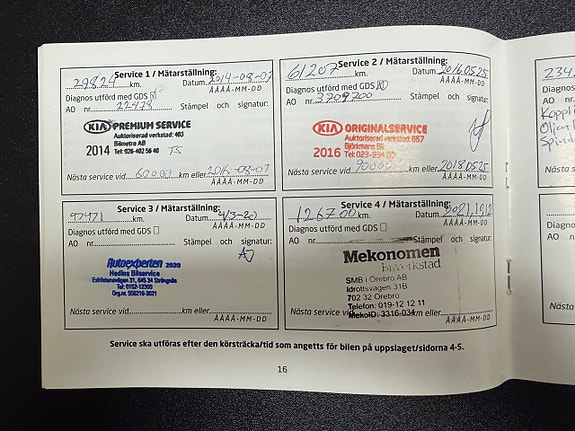 Service 1 / Mätarställning:
29824 km. Datum 2014-08-07
ÅÅÅÅ-MM-DD
Diagnos utförd med GDS
AO nr. 22478 Stämpel och signatur:
KIA PREMIUM SERVICE
Auktoriserad verkstad: 403
Bilmetro AB
2014 Tel: 026-402 56 40
Nästa service vid 60000 km eller 2016-08-07
ÅÅÅÅ-MM-DD
Service 2 / Mätarställning:
61207 km. Datum 2016.05.25
ÅÅÅÅ-MM-DD
Diagnos utförd med GDS
AO nr. 3709700 Stämpel och signatur:
KIA ORIGINALSERVICE
Auktoriserad verkstad: 667
Björkmans Bil
2016 Tel:
Nästa service vid 90000 km eller 2018.05.25
ÅÅÅÅ-MM-DD
Service 3 / Mätarställning:
97971 km. Datum 4/3-20
ÅÅÅÅ-MM-DD
Diagnos utförd med GDS
AO nr. Stämpel och signatur:
AJ
Autoexperten 2020
Hedins Bilservice
Eskilstunavägen 31, 645 34 Strängnäs
Tel: 0152-13300
Org.nr. 556216-3021
Nästa service vid km eller
ÅÅÅÅ-MM-DD
Service 4 / Mätarställning:
126700 km. Datum 2021,10,12
ÅÅÅÅ-MM-DD
Diagnos utförd med GDS
AO nr. Stämpel och signatur:
Mekonomen
Bilverkstad
SMB i Örebro AB
Idrottsvägen 31B
702 32 Örebro
Telefon: 019-12 12 11
MekoID. 3316-034
Nästa service vid km eller
ÅÅÅÅ-MM-DD
Service ska utföras efter den körsträcka/tid som angetts för bilen på uppslaget/sidorna 4-5.
16
234
AO
Koppl
Oljen
Spind
Nästa